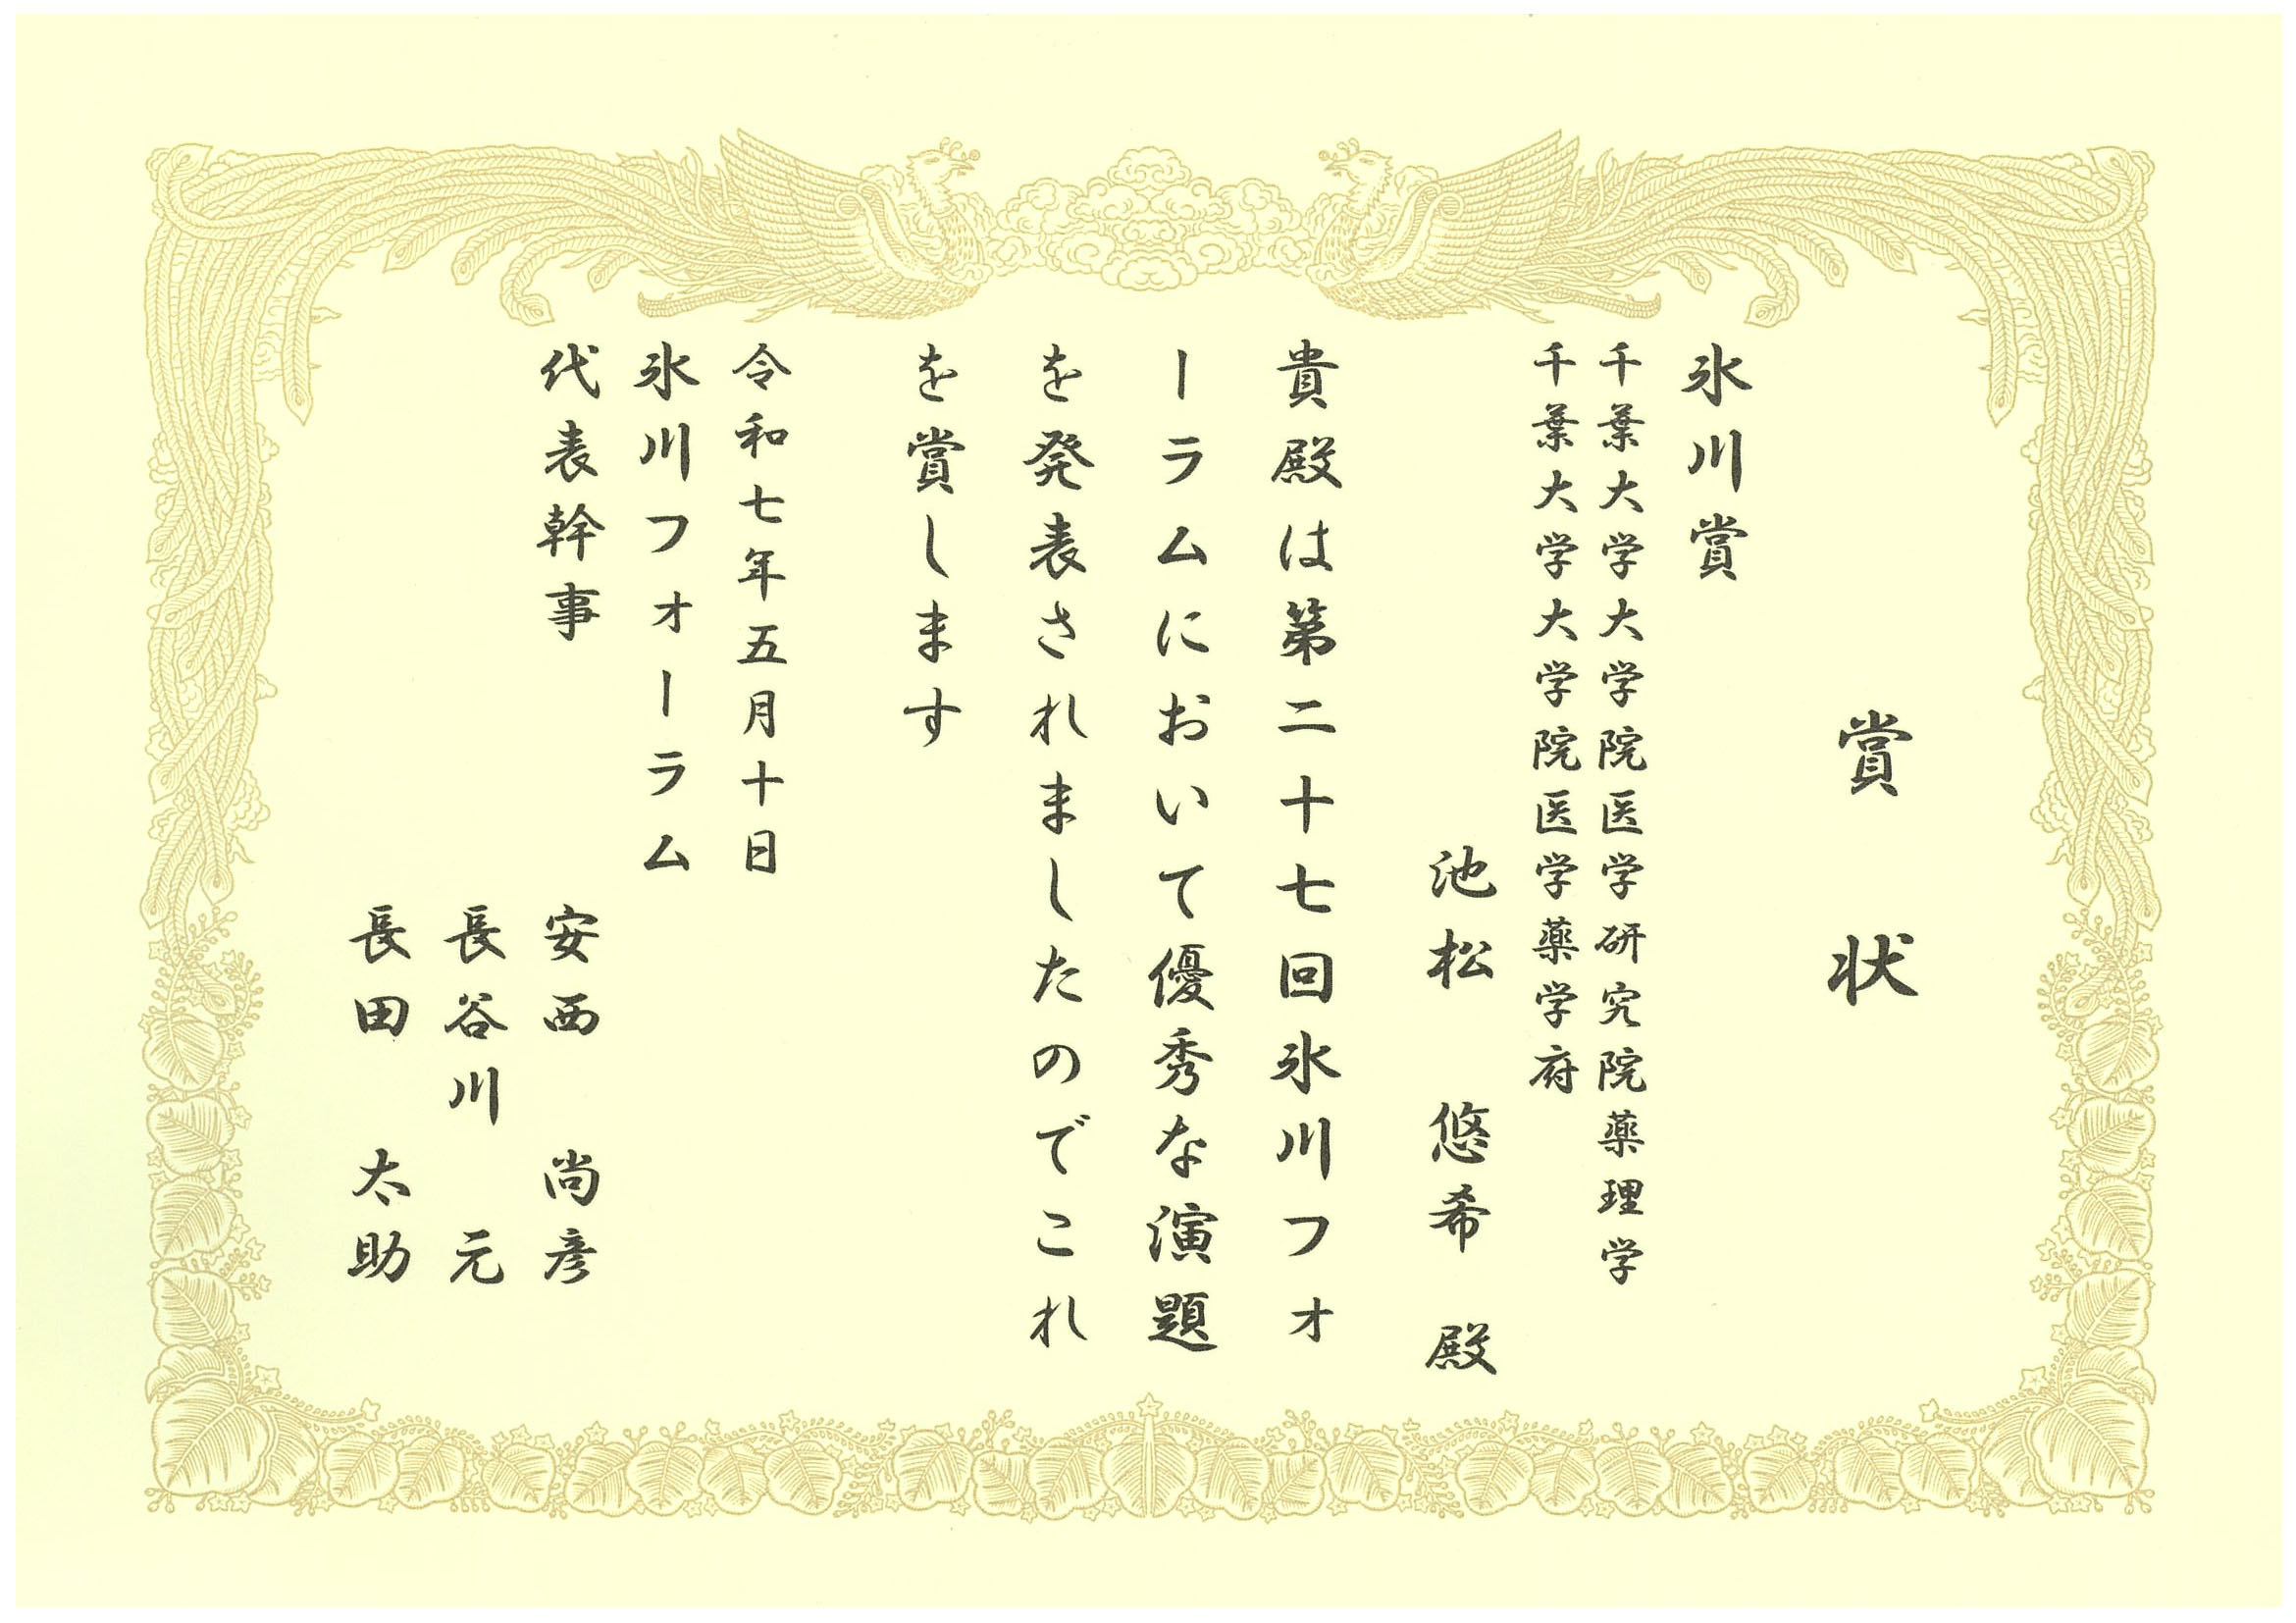 賞状
氷川賞
千葉大学大学院医学研究院薬理学
千葉大学大学院医学薬学府
池松 悠希 殿
貴殿は第二十七回氷川フォ
ーラムにおいて優秀な演題
を発表されましたのでこれ
を賞します
令和七年五月十日
氷川フォーラム
代表幹事 安西 尚彦
長谷川 元
長田 太助